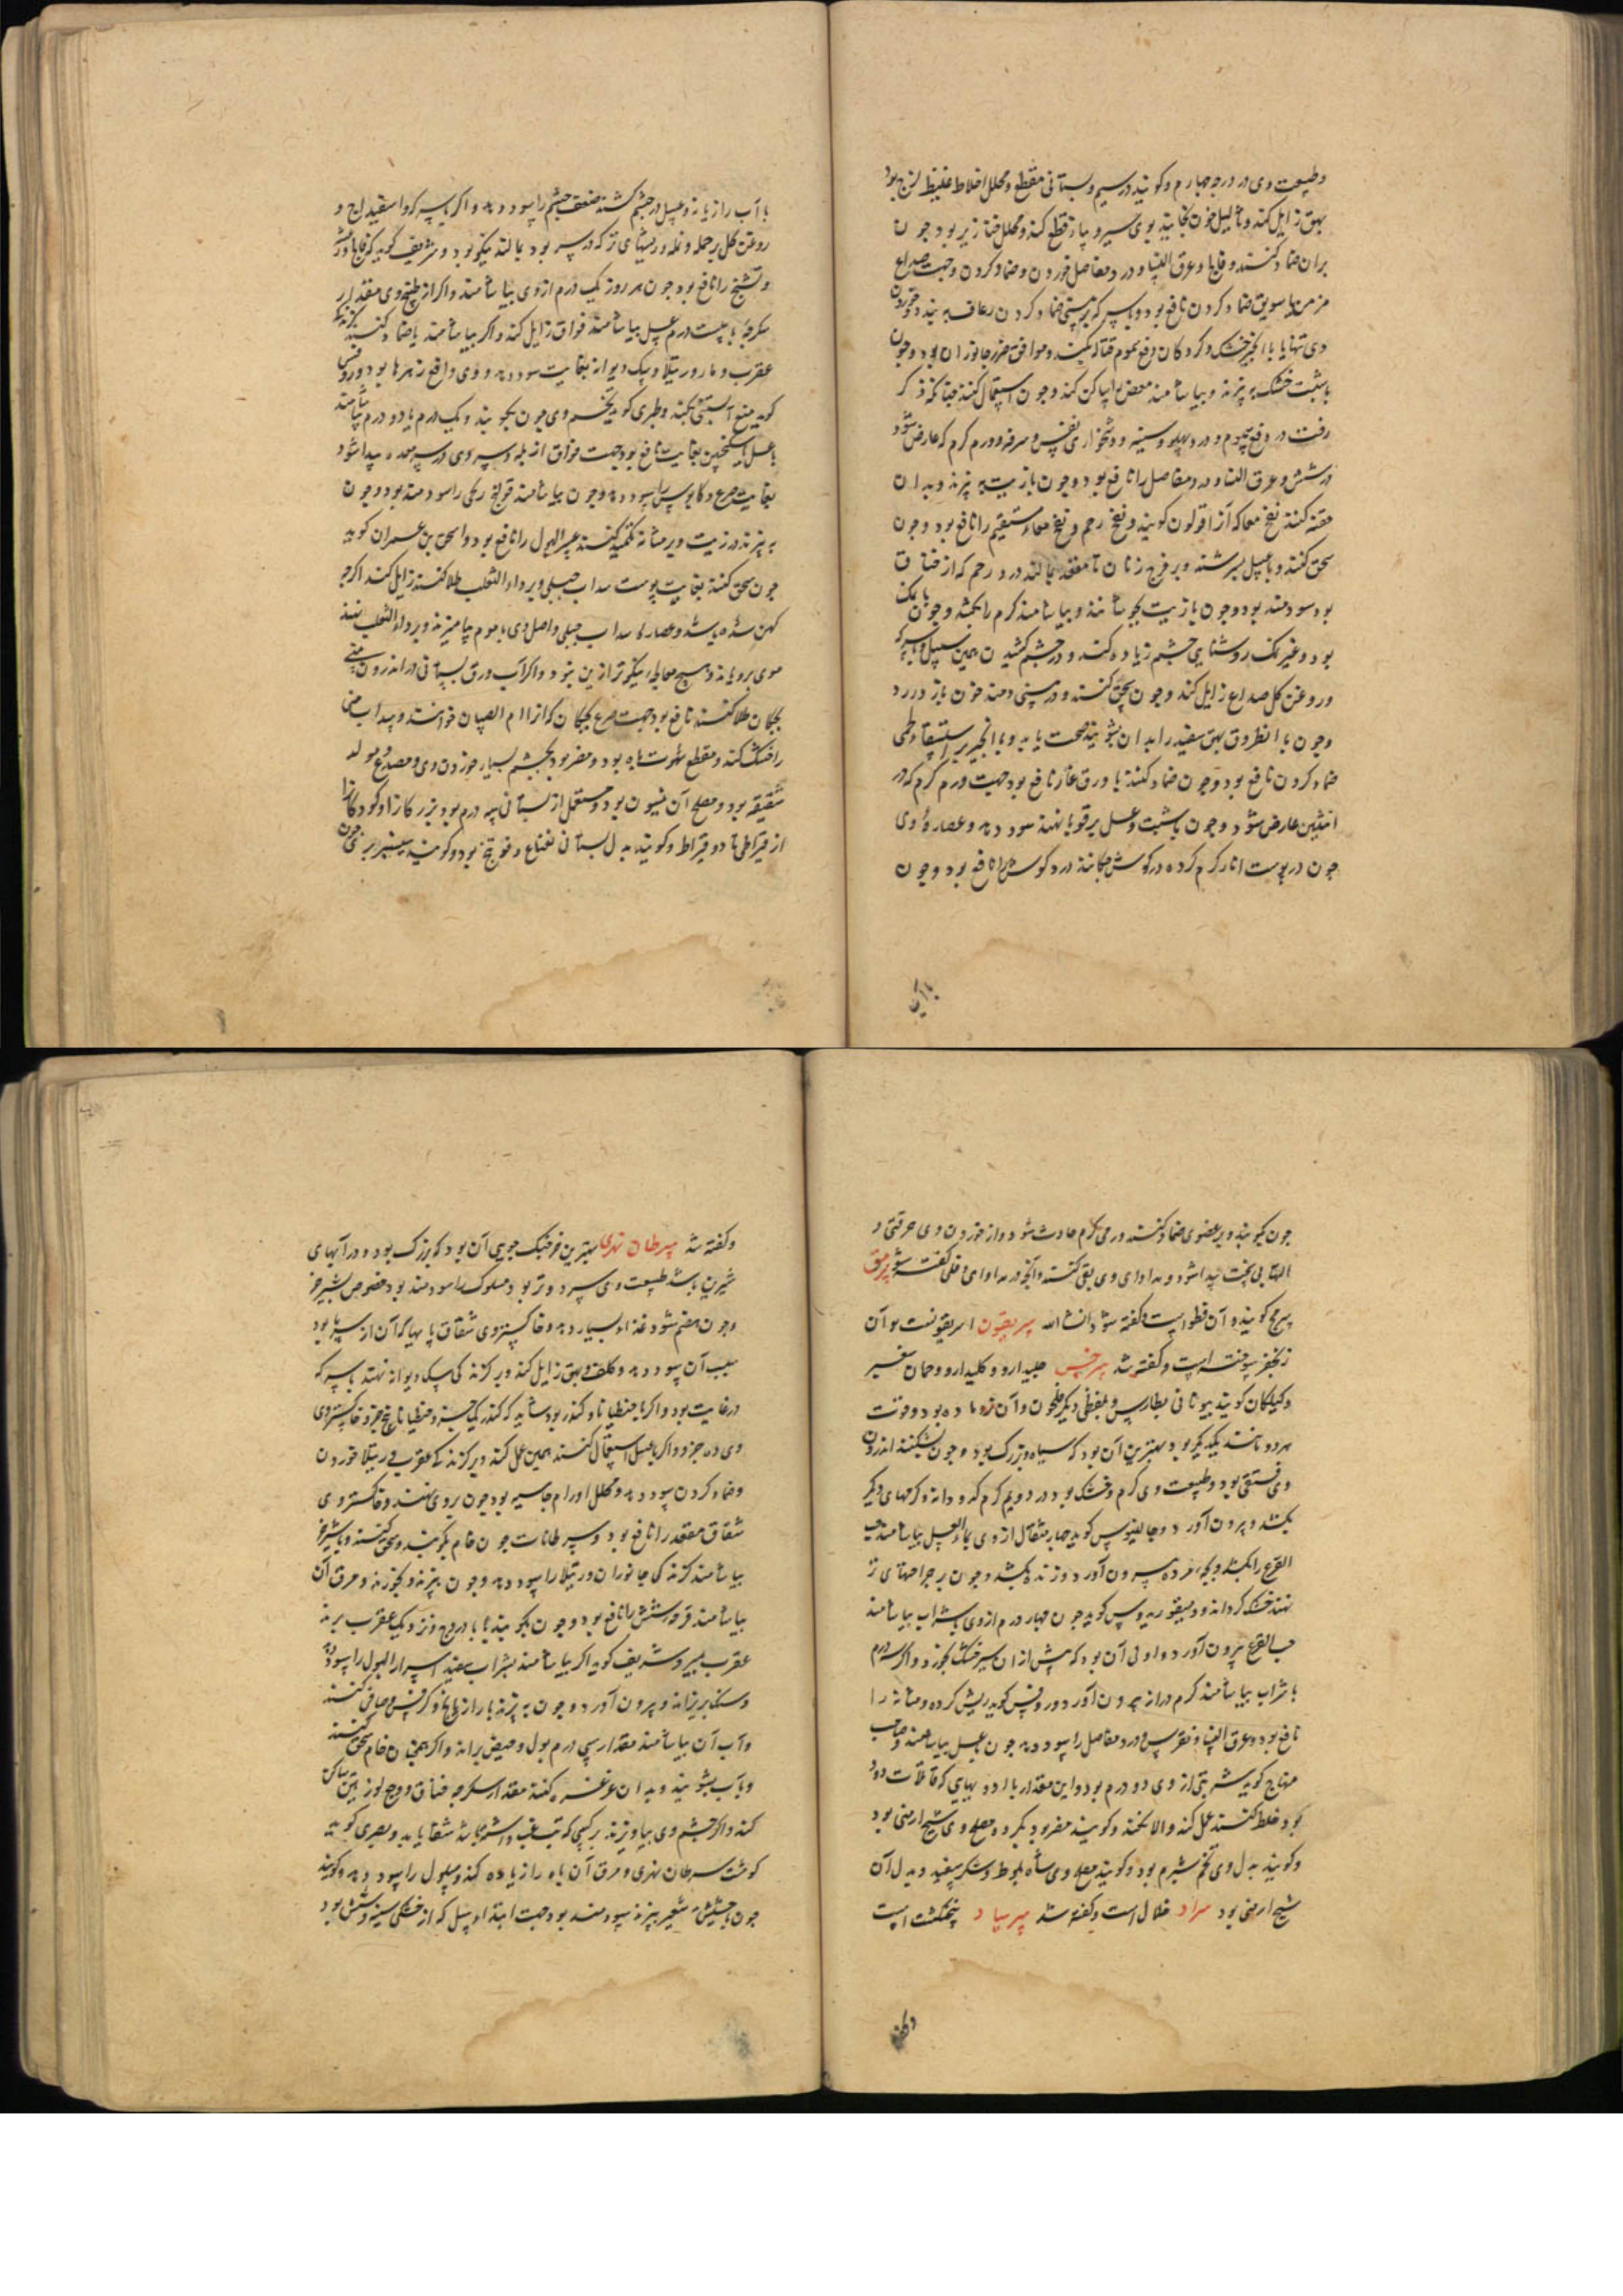 وطبیعت وی در درجه چهارم وکویند در سیم و بستانی مقطع و محلل اخلاط غلیظ لزج بود
بهق زایل کند وثالیل چون بخایند بوی سیر و پیاز قطع کند و محلل خنازیر بود چون
بران ضماد کنند وفالج وعرق النسا ودرد مفاصل خوردن وضماد کردن وجهت صداع
مزمن با سویق ضماد کردن نافع بود وبا سرکه بر بینی ضماد کردن رعاف ببندد وخوردن
وی تنها یا با انجیر خشک وکردکان دفع سموم قتاله بکند وموافق ضرر جانوران بود وچون
با شبت خشک بپزند وبیاشامند مغص را ساکن کند وچون استعمال کنند چنانکه ذکر
رفت در دفع سموم ودرد پهلو وسینه ودشخواری نفس وسرفه وورم کرم که عارض شود
در شش وعرق النسا ودرد مفاصل را نافع بود وچون با زیت بپزند وبدان
حقنه کنند نفخ معا که آنرا قولون کویند ونفخ رحم ونفخ معاء مستقیم را نافع بود وچون
سحق کنند وبا عسل بسرشند وبر فرج زنان تا مقعد بمالند درد رحم که از خناق
بود سودمند بود وچون با زیت بجوشانند وبیاشامند کرم را بکشد وچون با نمک
بود وغیر نمک روشنایی چشم زیاده کند ودر چشم کشیدن همین سبیل وبا سرکه
وروغن کل صداع زایل کند وچون سحق کنند ودر بینی دمند خون باز دارد
وچون با نطرون بهق سفید را بدان بشویند صحت یابد وبا انجیر بر استسقاء لحمی
ضماد کردن نافع بود وچون ضماد کنند با ورق غار نافع بود جهت ورم کرم که در
انثیین عارض شود وچون با شبت وعسل بر قوبا نهند سود دهد وعصاره وی
چون در پوست انار کرم کرده در کوش چکانند درد کوش را نافع بود وچون
با آب
با آب رازیانه وعسل در چشم کشند ضعف چشم را سود دهد واکر با سرکه واسفیداج و
روغن کل بر حمله ونمله وریشهای تر که در سر بود بمالند نیکو بود وشریف کوید که فالج ورعشه
وتشنج را نافع بود چون هر روز یک درم ازوی بیاشامند واکر از طبیخ وی مقدار
سکرجه با بیست درم عسل بیاشامند فواق زایل کند واکر بیاشامند یا ضماد کنند
عقرب ومار ورتیلا وسک دیوانه بغایت سود دهد ووی دافع زهرها بود وروفس
کوید منع آبستنی بکند وطبری کوید تخم وی چون بجوشند ویک درم یا دو درم بیاشامند
با عسل یا سکنجبین بغایت نافع بود جهت فواق از بلغم وسردی در سر معده پیدا شود
بغایت صرع وکابوس را سود دهد وچون بیاشامند قولنج ریحی را سودمند بود وچون
بپزند در زیت وبر مثانه تکمید کنند عسر البول را نافع بود واسحق بن عمران کوید
چون سحق کنند بغایت پوست سداب جبلی وبر داء الثعلب طلا کنند زایل کند اکر چه
کهن شده باشد وعصاره سداب جبلی واصل وی با موم بیامیزند وبر داء الثعلب نهند
موی برویاند وهیچ معالجه نیکوتر ازین نبود واکر آب ورق بستانی در اندرون بینی
بچکان طلا کنند نافع بود جهت صرع بچکان که آنرا ام الصبیان خوانند وسداب منی
را خشک کند ومقطع شهوت باه بود ومضر بود بچشم بسیار خوردن وی ومصدع ومولد
شقیقه بود ومصلح آن انیسون بود ومستعمل از بستانی سه درم بود بزرکان را وکودکان را
از قیراطی تا دو قیراط وکویند بدل بستانی نعناع وفوتنج بود وکویند سیسنبر بری چون
چون بکوبند وبر عضوی ضماد کنند ورمی کرم حادث شود واز خوردن وی حرقتی و
التهابی سخت پیدا شود ومداوای وی بقی کنند وآنچه در مداوای دفلی کفته شود سرمق
سرمج کویند وآن قطف است وکفته شود انشاالله سریقون اسریقونست وآن
زنجفر سوخته است وکفته شد سرخس جلیدارو وکلیدارو وحمان سفیر
وکیلکان کویند بیونانی بطارس وبلفظی دیکر طیحون وآن نر وماده بود وقوت
هر دو مانند یکدیکر بود بهترین آن بود که سیاه وبزرک بود وچون بشکنند اندرون
وی فستقی بود وطبیعت وی کرم وخشک بود در دویم کرم کدو دانه وکرمهای دیکر
بکشد وبیرون آورد وجالینوس کوید چهار مثقال ازوی بماء العسل بیاشامند حب
القرع را بکشد وبچه مرده بیرون آورد وزنده بکشد وچون بر جراحتهای تر
نهند خشک کرداند ودیسقوریدوس کوید چون چهار درم ازوی با شراب بیاشامند
حب القرع بیرون آورد واولی آن بود که پیش ازان سیر خشک بخورد واکر سه درم
با شراب بیاشامند کرم دراز بیرون آورد وروفس کوید ریش کرده ومثانه را
نافع بود وعرق النسا ونقرس ودرد مفاصل را سود دهد چون با عسل بیاشامند وصاحب
منهاج کوید شربتی از وی دو درم بود واین مقدار با ادویهایی که قاتلات دود
بود خلط کنند عمل کند والا نکند وکویند مضر بود بکرده ومصلح وی شیح ارمنی بود
وکویند بدل وی تخم شبرم بود وکویند مصلح وی شاه بلوط وشکر سفید وبدل آن
شیح ارمنی بود سراد خلال است وکفته شد سرساد پنجنکشت است
وکفته شد سرطان نهری بهترین خرچنک جویی آن بود که بزرک بود ودر آبهای
شیرین باشد طبیعت وی سرد وتر بود مسلول را سودمند بود خصوص بشیر خر
وچون هضم شود غذاء بسیار دهد وخاکستر وی شقاق پایها که آن از سرما بود
بسبب آن سود دهد وکلف وبهق زایل کند وبر کزندکی سک دیوانه نهند با سرکه
در غایت بود واکر با جنطیانا وکندر بود شاید که کندر یک جزو وجنطیانا پنج جزو وخاکستر وی
وی ده جزو واکر با عسل استعمال کنند همین عمل کند وبر کزندکی عقرب ورتیلا خوردن
وضماد کردن سود دهد ومحلل اورام جاسیه بود چون بروی نهند وخاکستر وی
شقاق مقعد را نافع بود وسرطانات چون خام بکوبند وسحق کنند وبا شیر خر
بیاشامند کزندکی جانوران ورتیلا را سود دهد وچون بپزند وبخورند ومرق آن
بیاشامند قرحه شش را نافع بود وچون بکوبند با بادروج ونزدیک عقرب برند
عقرب بمیرد وشریف کوید اکر بیاشامند بشراب سفید اسرار البول را سود دهد
وسنک بریزاند وبیرون آورد وچون بپزند با رازیانج وکرفس وصافی کنند
وآب آن بیاشامند مقدار سی درم بول وحیض براند واکر همچنان خام سحق کنند
وبآب بشویند وبدان غرغره کنند مقدار سکرجه خناق ووجع لوزتین ساکن
کند واکر چشم وی بیاویزند بر کسی که تب غب داشته باشد شفا یابد وبصری کوید
کوشت سرطان نهری ومرق آن باه را زیاده کند ومسلول را سود دهد وکویند
چون با حشیش شعیر بپزند سودمند بود جهت ابتداء سل که از خشکی سینه وشش بود